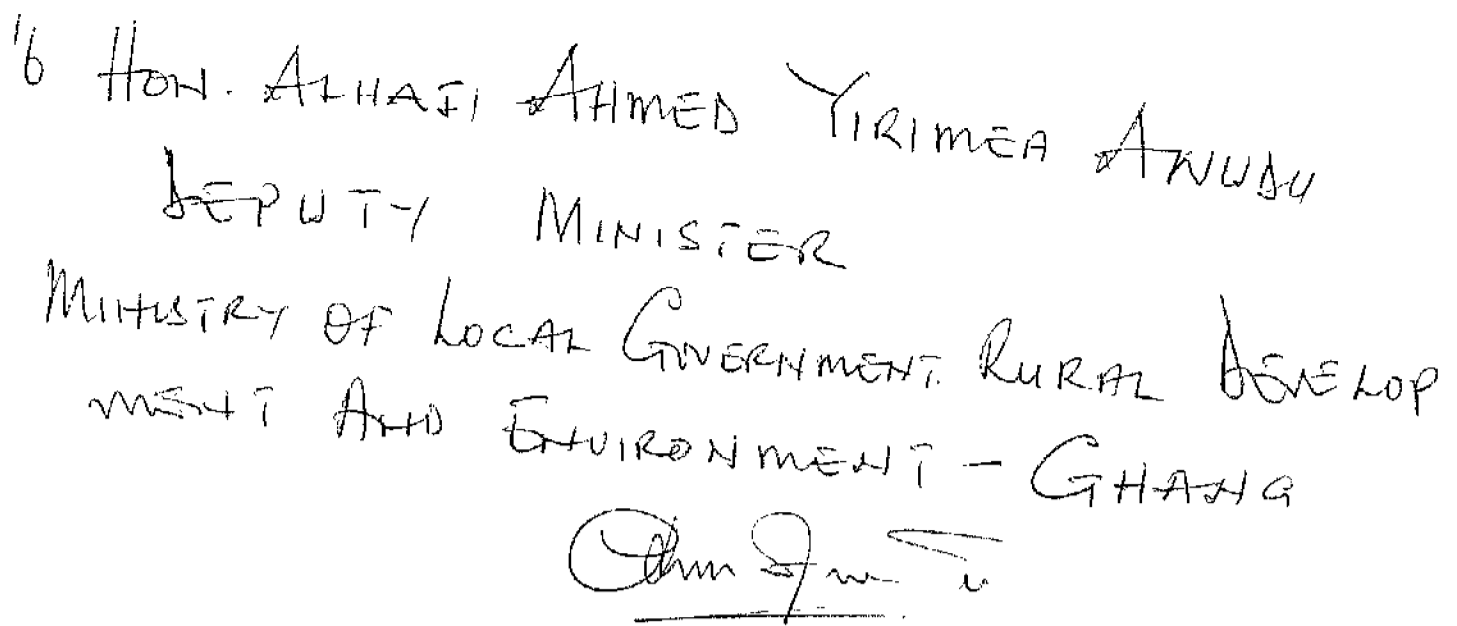 16 HON. ALHAJI AHMED YIRIMEA AWUDU
DEPUTY MINISTER
MINISTRY OF LOCAL GOVERNMENT. RURAL DEVELOP
MENT AND ENVIRONMENT - GHANA